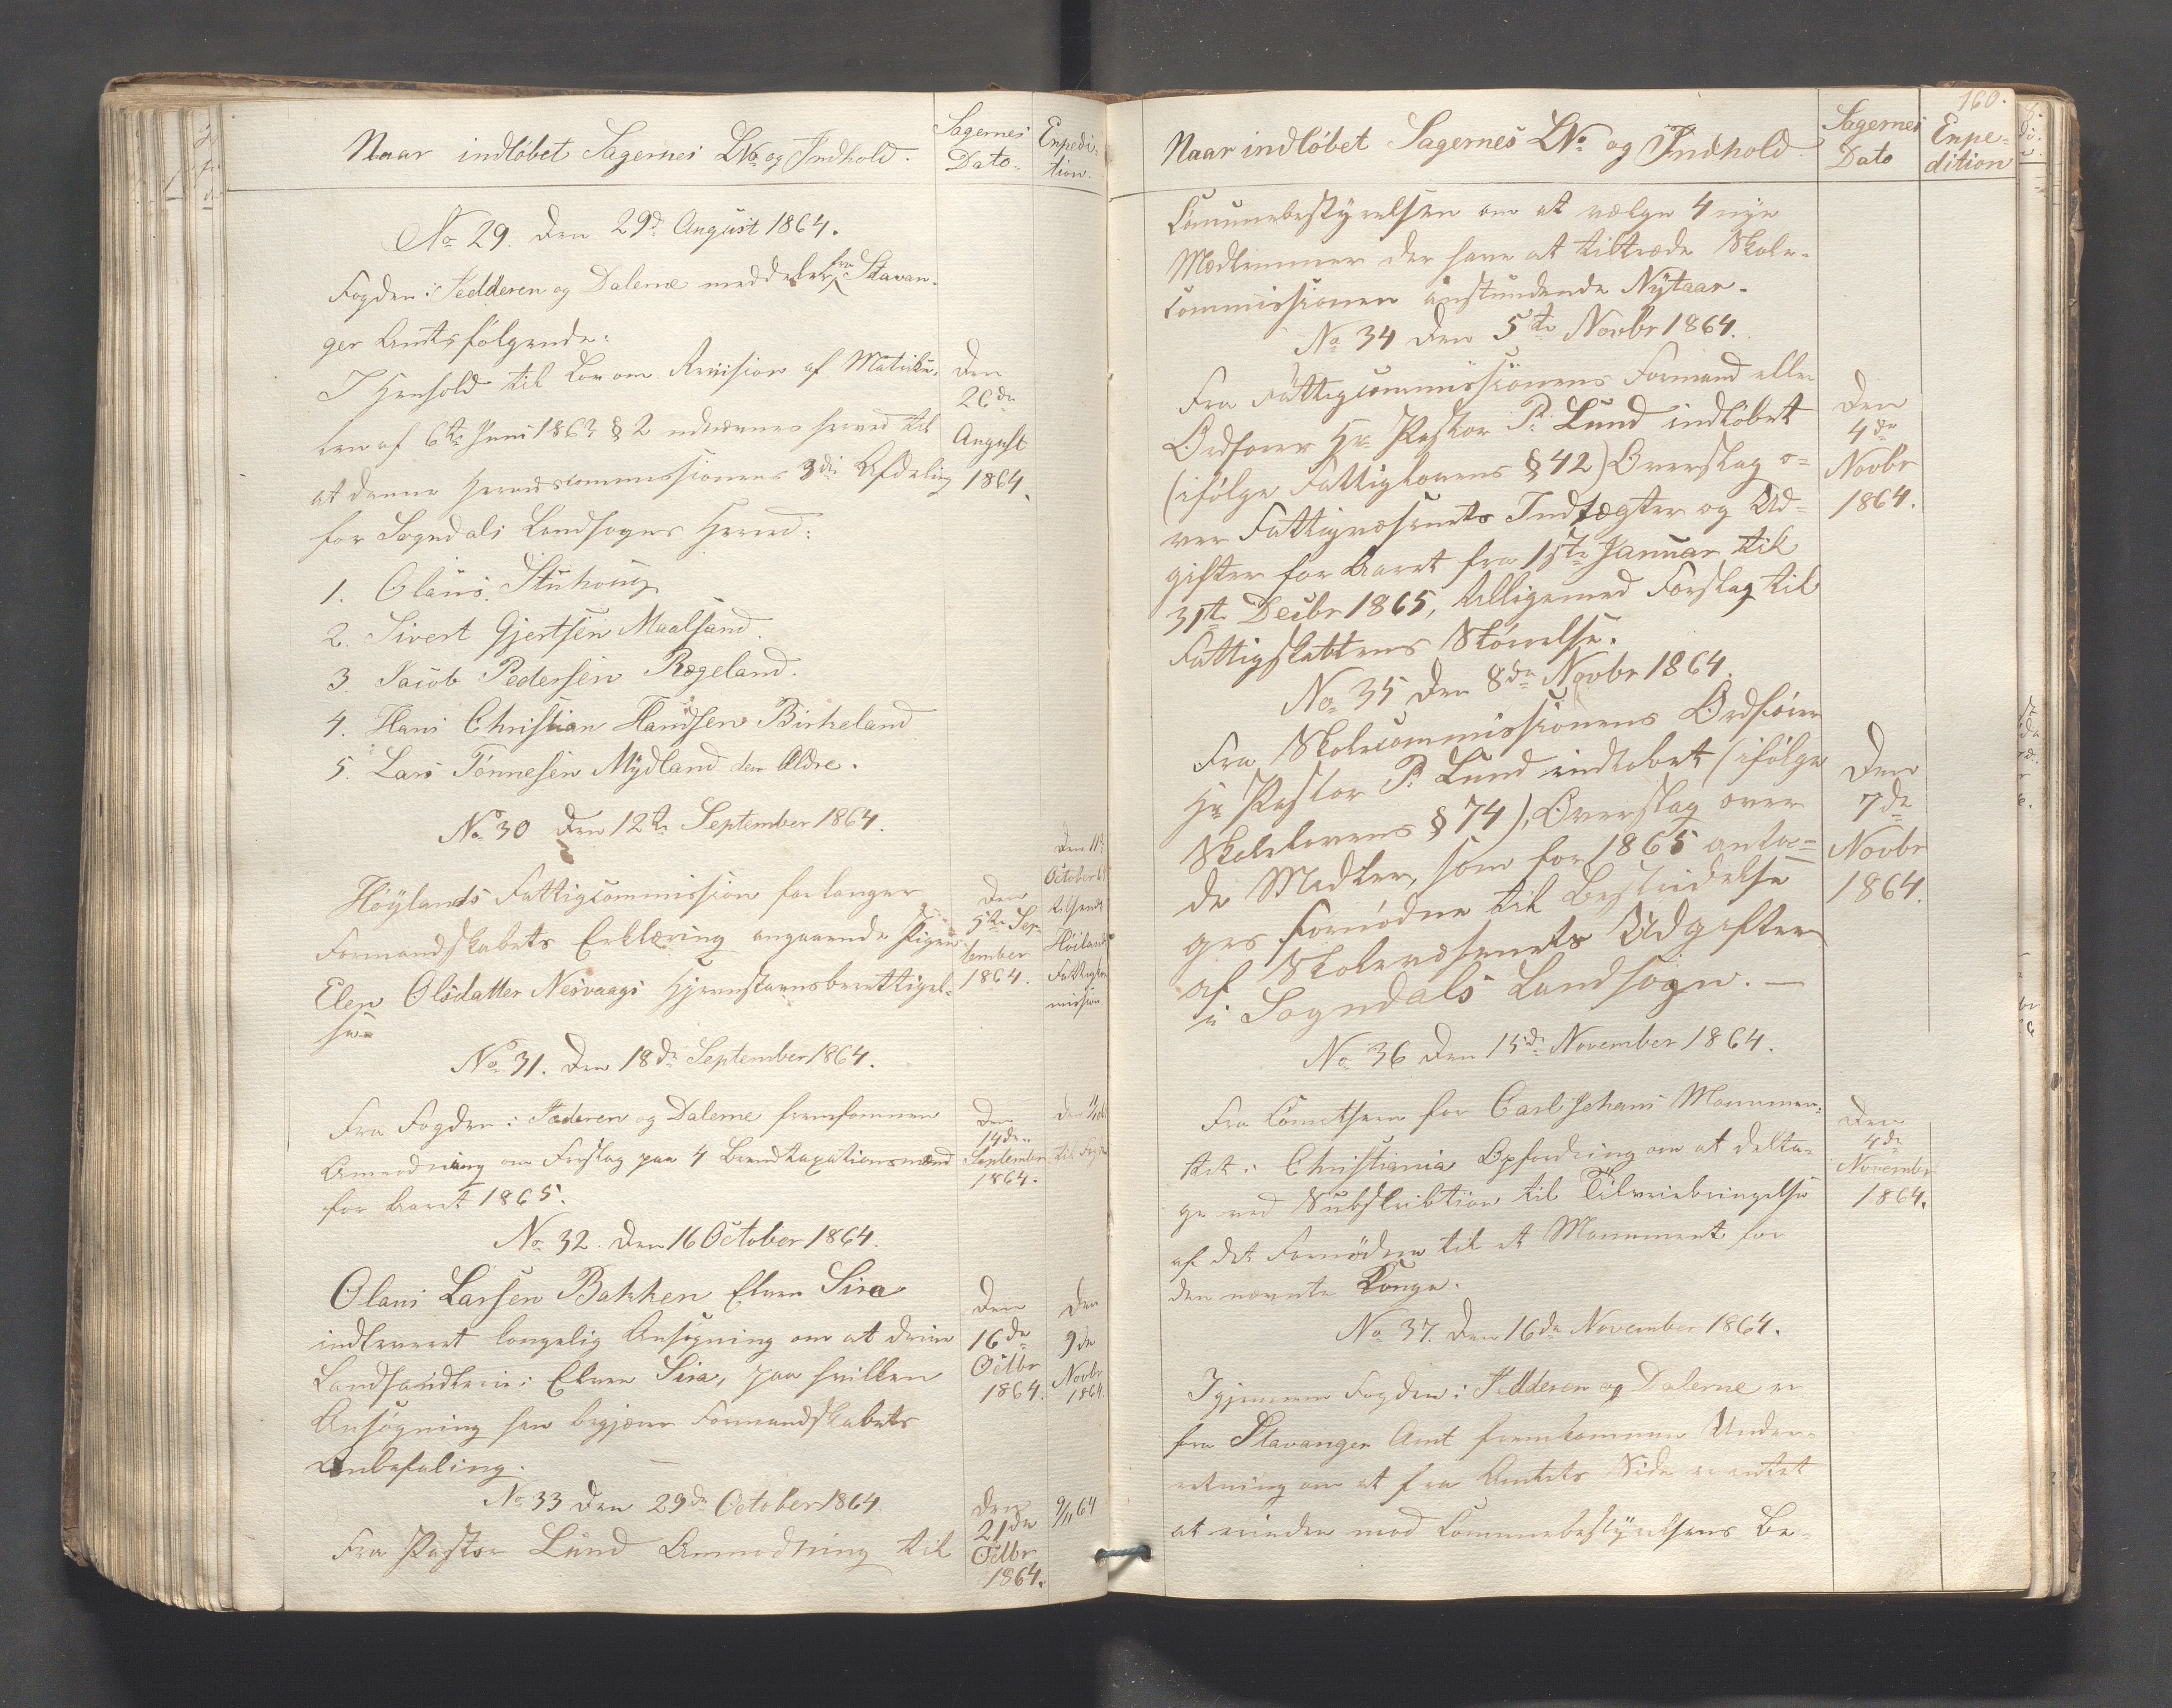 Naar indlöbet Sagernes LNo og Indhold.
Sagernes Dato.
Expedi-
tion.
No 29. Den 29de August 1864.
Fogden i Jedderen og Dalerne meddeler fra Stavan-
ger Amt følgende:
I Henhold til Lov om Revision af Matriku-
len af 6te Juni 1863 § 2 udnævnes herved til
at danne Herredscommissionens 3die Afdeling
for Sogndals Landsogns Herred:
Den
26de
August
1864.
1. Olaus Stuhoug
2. Sivert Gjertsen Maalsand.
3. Jacob Pedersen Rægeland.
4. Hans Christian Handsen Birkeland
5. Lars Tönnesen Mydland den Ældre.
No 30 Den 12te September 1864.
Höylands Fattigcommission forlanger
Formandskabets Erklæring angaaende Pigen
Elen Olsdatter Nesvaags Hjemstavnsberettigel-
se
Den
5te Sep-
tember
1864.
Den 11te
October 64
tilsendt
Höilands
Fattigkom
mission
No 31. Den 18de September 1864.
Fra Fogden i Jæderen og Dalerne fremkommen
Anmodning om Forslag paa 4 Brandtaxationsmænd
for Aaret 1865.
Den
14de
September
1864.
til Fogden
No 32. Den 16 October 1864.
Olaus Larsen Bakken Elven Sira
indleveret kongelig Ansøgning om at drive
Landhandleri i Elven Sira, paa hvilken
Ansøgning han begjærer Formandskabets
Anbefaling.
Den
16de
Octbr
1864.
Den
9de
Novbr
1864.
No 33 Den 23de October 1864
Fra Pastor Lund Anmodning til
Den
21de
Octbr
1864.
9/11 64
160.
Naar indlöbet Sagernes LNo og Indhold
Sagernes
Dato
Expe-
dition
Communebestyrelsen om at vælge 4 nye
Medlemmer der have at tiltræde Skole-
commissionen anstundende Nytaar.
No 34 Den 5te Novbr 1864.
Fra Fattigcommissionens Formand eller
Ordfører Hr Pastor P. Lund indlöbet
(ifølge Fattiglovens § 42) Overslag o-
ver Fattigvæsenets Indtægter og Ud-
gifter for Aaret fra 1ste Januar til
31te Decbr 1865, tilligemed Forslag til
Fattigskattens Størrelse.
Den
4de
Novbr
1864.
No 35 Den 8de Novbr 1864.
Fra Skolecommissionens Ordfører
Hr Pastor P. Lund indløbet (ifølge
Skolelovens § 74), Overslag over
de Midler, som for 1865 anta-
ges fornødne til Bestridelse
af Skolevæsenets Udgifter
i Sogndals Landsogn. —
Den
7de
Novbr
1864.
No 36 Den 15de November 1864.
Fra Comiteen for Carl Johans Monumen-
tet i Christiania Opfordring om at delta-
ge ved Subskribtion til Tilveiebringelse
af det Fornødne til et Monument for
den nævnte Konge.
Den
4de
November
1864.
No 37. Den 16de November 1864.
Igjennem Fogden i Jedderen og Dalerne er
fra Stavanger Amt fremkommen Under-
retning om at fra Amtets Side er intet
at erindre mod Communebestyrelsens Be-